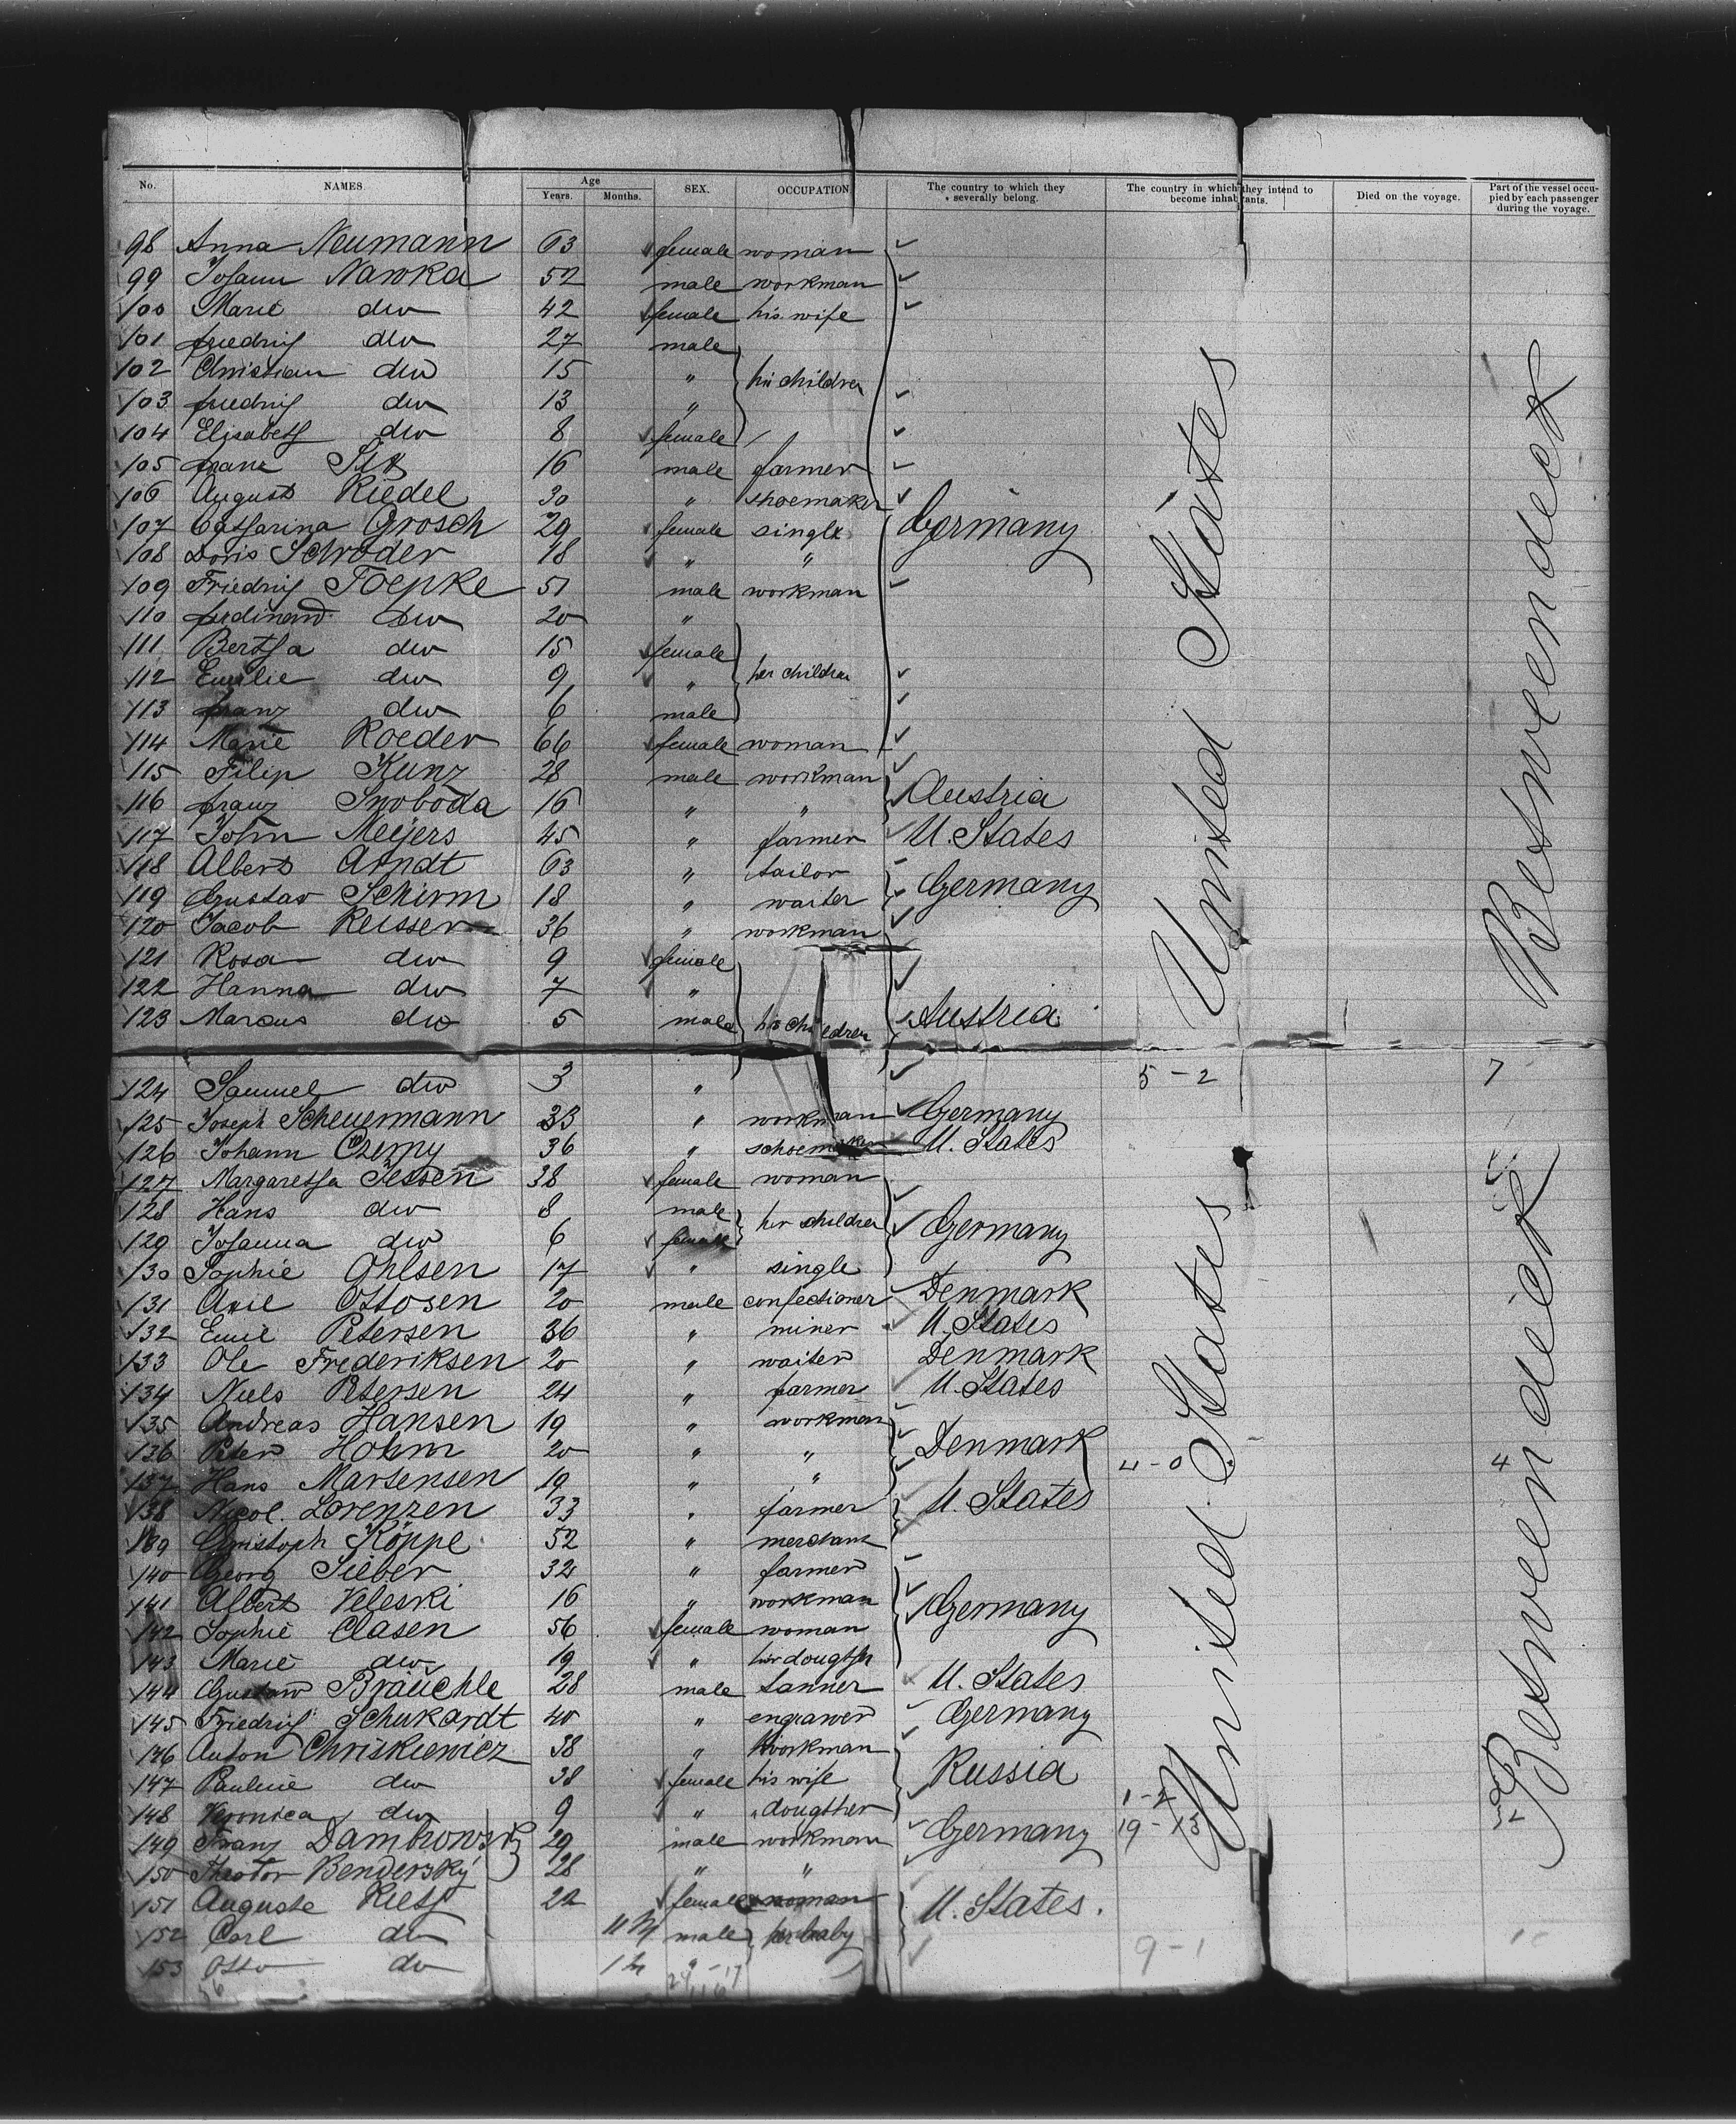 No. NAMES. Age Years. Months. SEX. OCCUPATION. The country to which they severally belong. The country in which they intend to become inhabitants. Died on the voyage. Part of the vessel occupied by each passenger during the voyage.
98 Anna Neumann 63 female woman
99 Johann Nawka 52 male workman
100 Marie do 42 female his wife
101 friedrich do 27 male
102 Christian do 15 " his children
103 friedrich do 13 "
104 Elisabeth do 8 female
105 franz 16 male farmer
106 August Riedel 30 " shoemaker
107 Catharina Grosch 29 female single Germany
108 Doris Schröder 18 " "
109 Friedrich Toepke 51 male workman
110 ferdinand do 20 "
111 Bertha do 15 female
112 Emilie do 9 " her children
113 franz do 6 male
114 Marie Roeder 66 female woman
115 Filip Kunz 28 male workman
116 franz Swoboda 16 " " Austria
117 John Meijers 45 " farmer U. States
118 Albert Arndt 63 " tailor
119 Gustav Schirm 18 " waiter Germany
120 Jacob Reisser 36 " workman
121 Rosa do 9 female
122 Hanna do 7 "
123 Marcus do 5 male his children Austria
United States
Between deck
124 Samuel do 3 " 5-2 7
125 Joseph Scheuermann 33 " workman Germany
126 Johann Czerny 36 " schoemaker U. States
127 Margaretha Jessen 38 female woman
128 Hans do 8 male her children Germany
129 Johanna do 6 female
130 Sophie Ohlsen 17 " single
131 Axel Ottosen 20 male confectioner Denmark
132 Emil Petersen 36 " miner U. States
133 Ole Frederiksen 20 " waiter Denmark
134 Niels Petersen 24 " farmer U. States
135 Andreas Hansen 19 " workman
136 Peter Holm 20 " " Denmark 4-0 4
137 Hans Martensen 19 " "
138 Nicol. Lorenzen 33 " farmer U. States
139 Christoph Köppe 52 " merchant
140 Georg Sieber 32 " farmer
141 Albert Veleski 16 " workman Germany
142 Sophie Clasen 56 female woman
143 Marie do 19 " her dougther
144 Gustav Bräuchle 28 male tanner U. States
145 Friedrich Schukardt 40 " engrawer Germany
146 Anton Chriskiewicz 38 " workman
147 Pauline do 38 female his wife Russia
148 Veronica do 9 " " dougther 1-2
149 Franz Dambrowsky 29 male workman Germany 19-13
150 Theodor Bendersky 28 " "
151 Auguste 22 female woman U. States.
152 Carl do 11 M male her baby
153 Otto do " 9-1
United States
Between deck